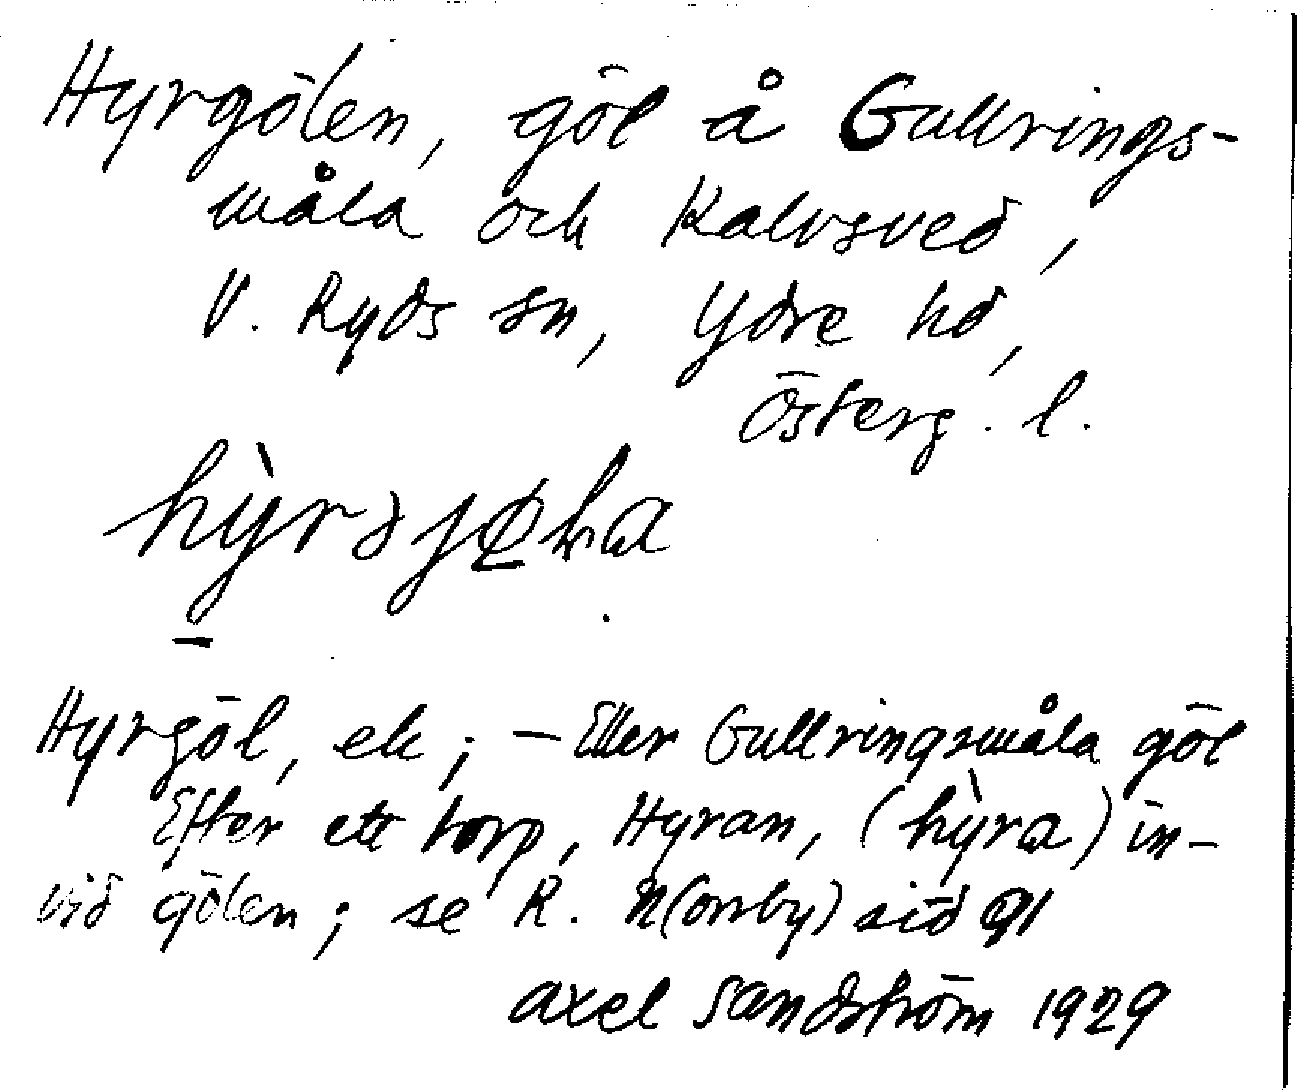 Hyrgölen, göl å Gullrings-
måla och Kalvsved,
V. Ryds sn, Ydre hd,
Österg. l.
Hyrgöl, ek; – Eller Gullringsmåla göl
Efter ett torp, Hyran, (hỳra) in-
vid gölen; se R. N(orrby) sid 91
axel Sandström 1929